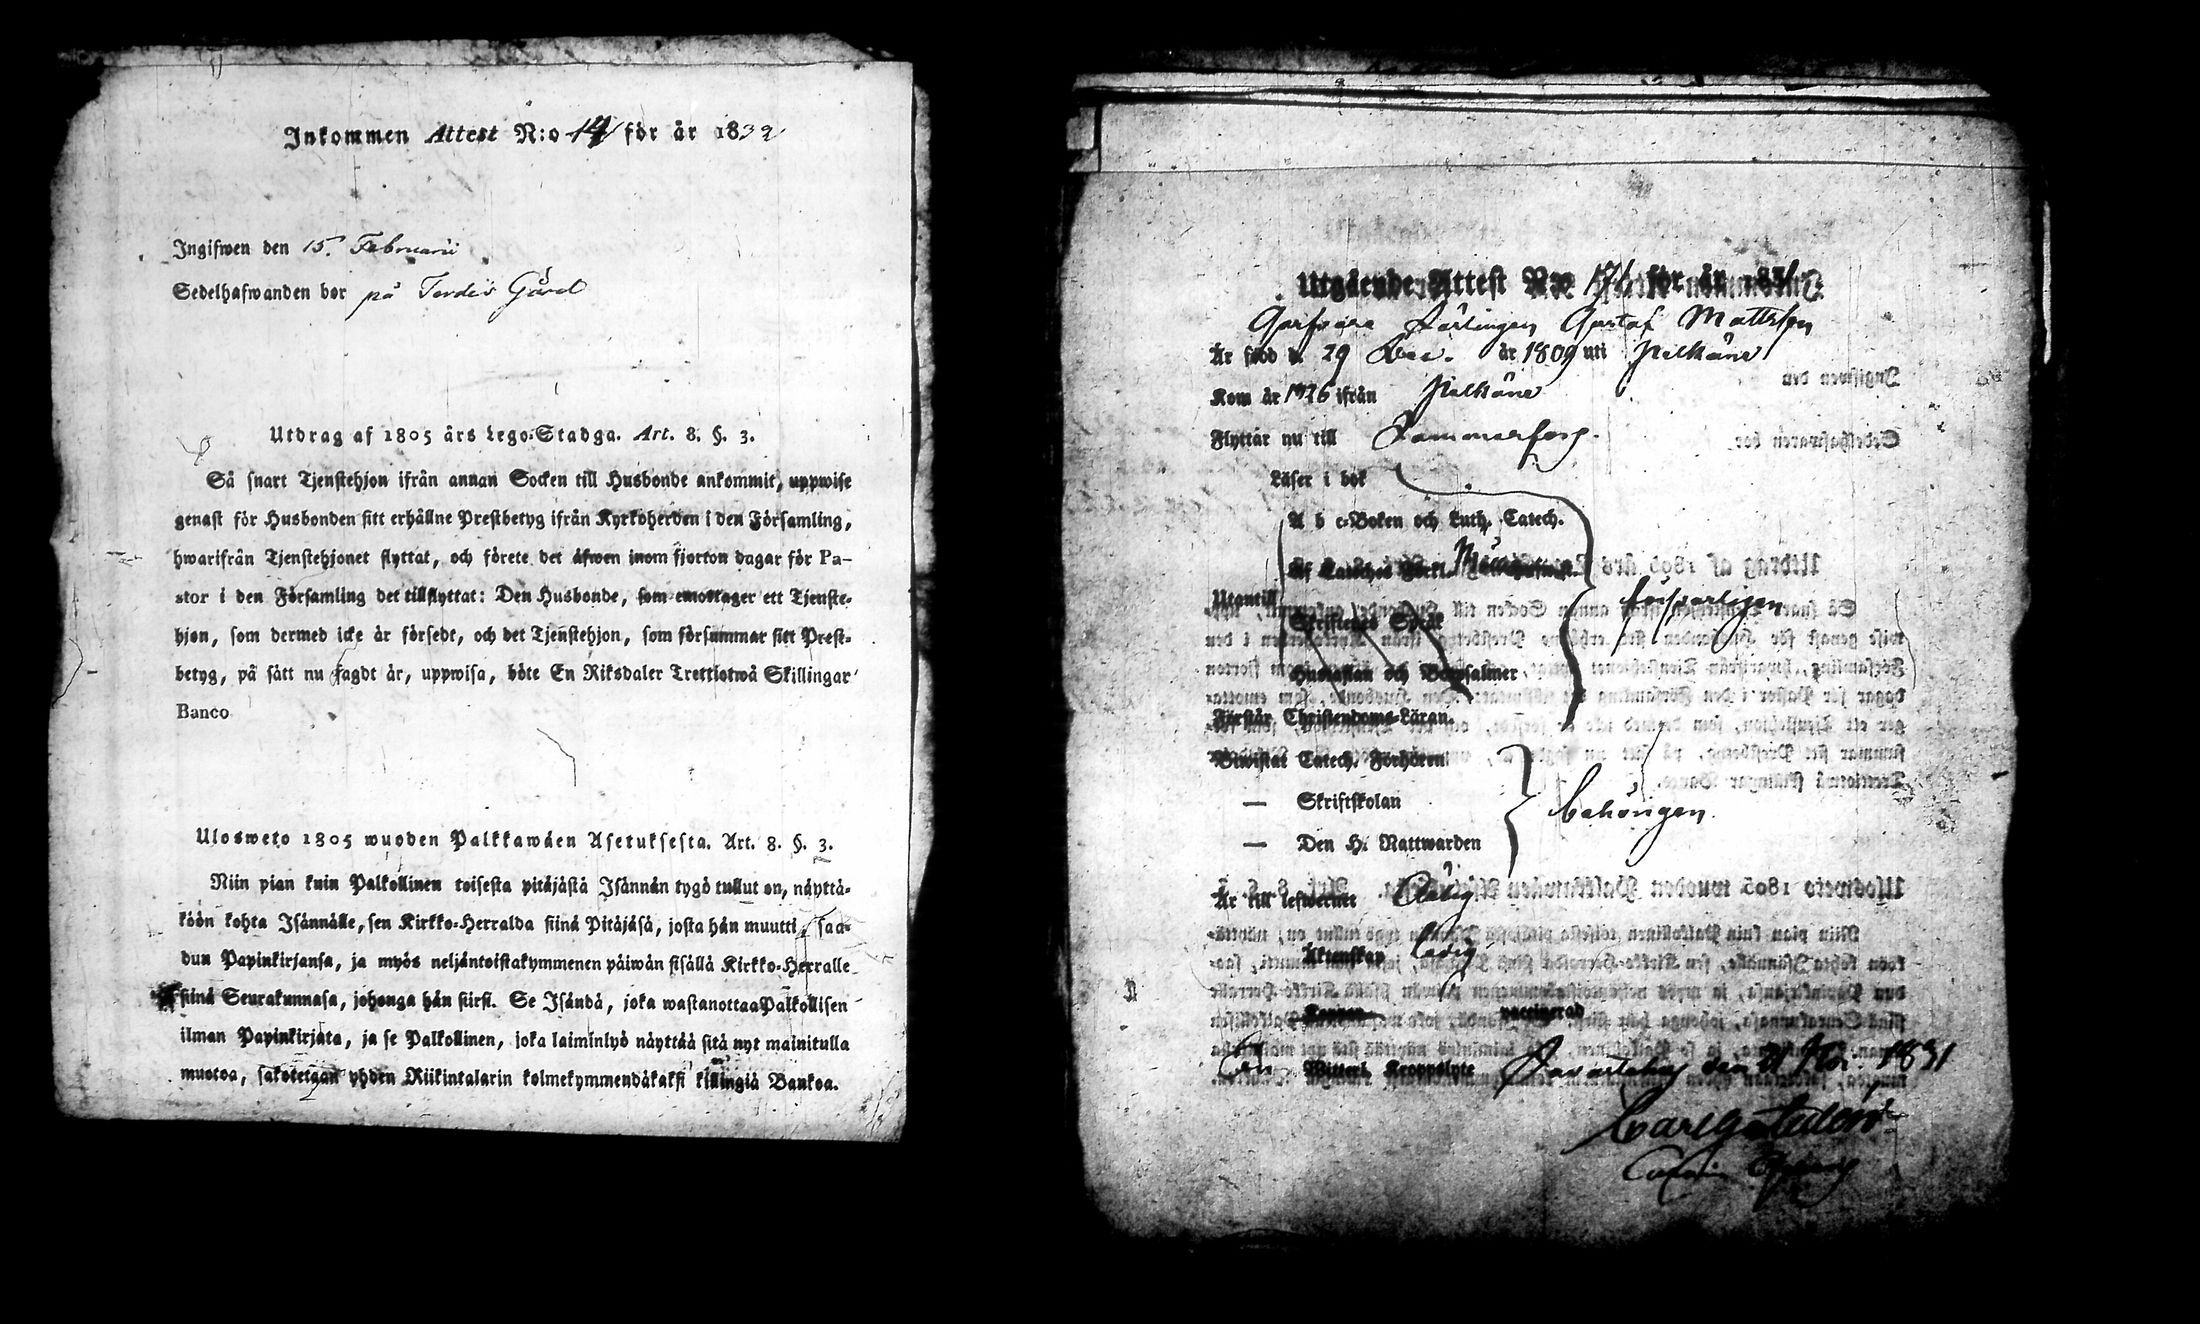 Inkommen Attest N:o 14 för år 1832
Ingifwen den 15. Februarii
Sedelhafwanden bor på Gård
Utdrag af 1805 års Lego-Stadga. Art. 8. §. 3.
Så snart Tjenstehjon ifrån annan Socken till Husbonde ankommit, uppwise
genast för Husbonden sitt erhållne Prestbetyg ifrån Kyrkoherden i den Församling,
hwarifrån Tjenstehjonet flyttat, och förete det äfwen inom fjorton dagar för Pa-
stor i den Församling det tillflyttat: Den Husbonde, som emottager ett Tjenste-
hjon, som dermed icke är försedt, och det Tjenstehjon, som försummar sitt Prest-
betyg, på sätt nu sagdt är, uppwisa, böte En Riksdaler Trettiotwå Skillingar
Banco
Ulosweto 1805 wuoden Palkkawäen Asetuksesta. Art. 8. §. 3.
Niin pian kuin Palkollinen toisesta pitäjästä Isännän tygö tullut on, näyttä-
köön kohta Isännälle, sen Kirkko-Herralda siinä Pitäjäsä, josta hän muutti, saa-
dun Papinkirjansa, ja myös neljäntoistakymmenen päiwän sisällä Kirkko-Herralle
siinä Seurakunnasa, johonga hän siirsi. Se Isändä, joka wastanottaa Palkollisen
ilman Papinkirjata, ja se Palkollinen, joka laiminlyö näyttää sitä nyt mainitulla
muotoa, sakotetaan yhden Riikintalarin kolmekymmendäkaksi killingiä Bankoa.
Utgående Attest N:o för år 1831
Garfvare Lärlingen Gustaf Mattsson
Är född d. 29 Dec. år 1809 uti Pelkäne
Kom år 1826 ifrån Pelkäne
Flyttar nu till Tammerfors.
Läser i bok
A b c-Boken och Luth. Catech.
Utantill
Skriftenes Språk
Hustaflan och Botpsalmer
försvarligen
Förstår Christendoms-Läran.
Biwistat Catech. Förhören
— Skriftskolan
— Den H. Nattwarden
behörigen
Är till lefwernet
Äktenskap ledig
Koppor vaccinerad
Wittert. Kroppslyte Tavastehus den 21 1831